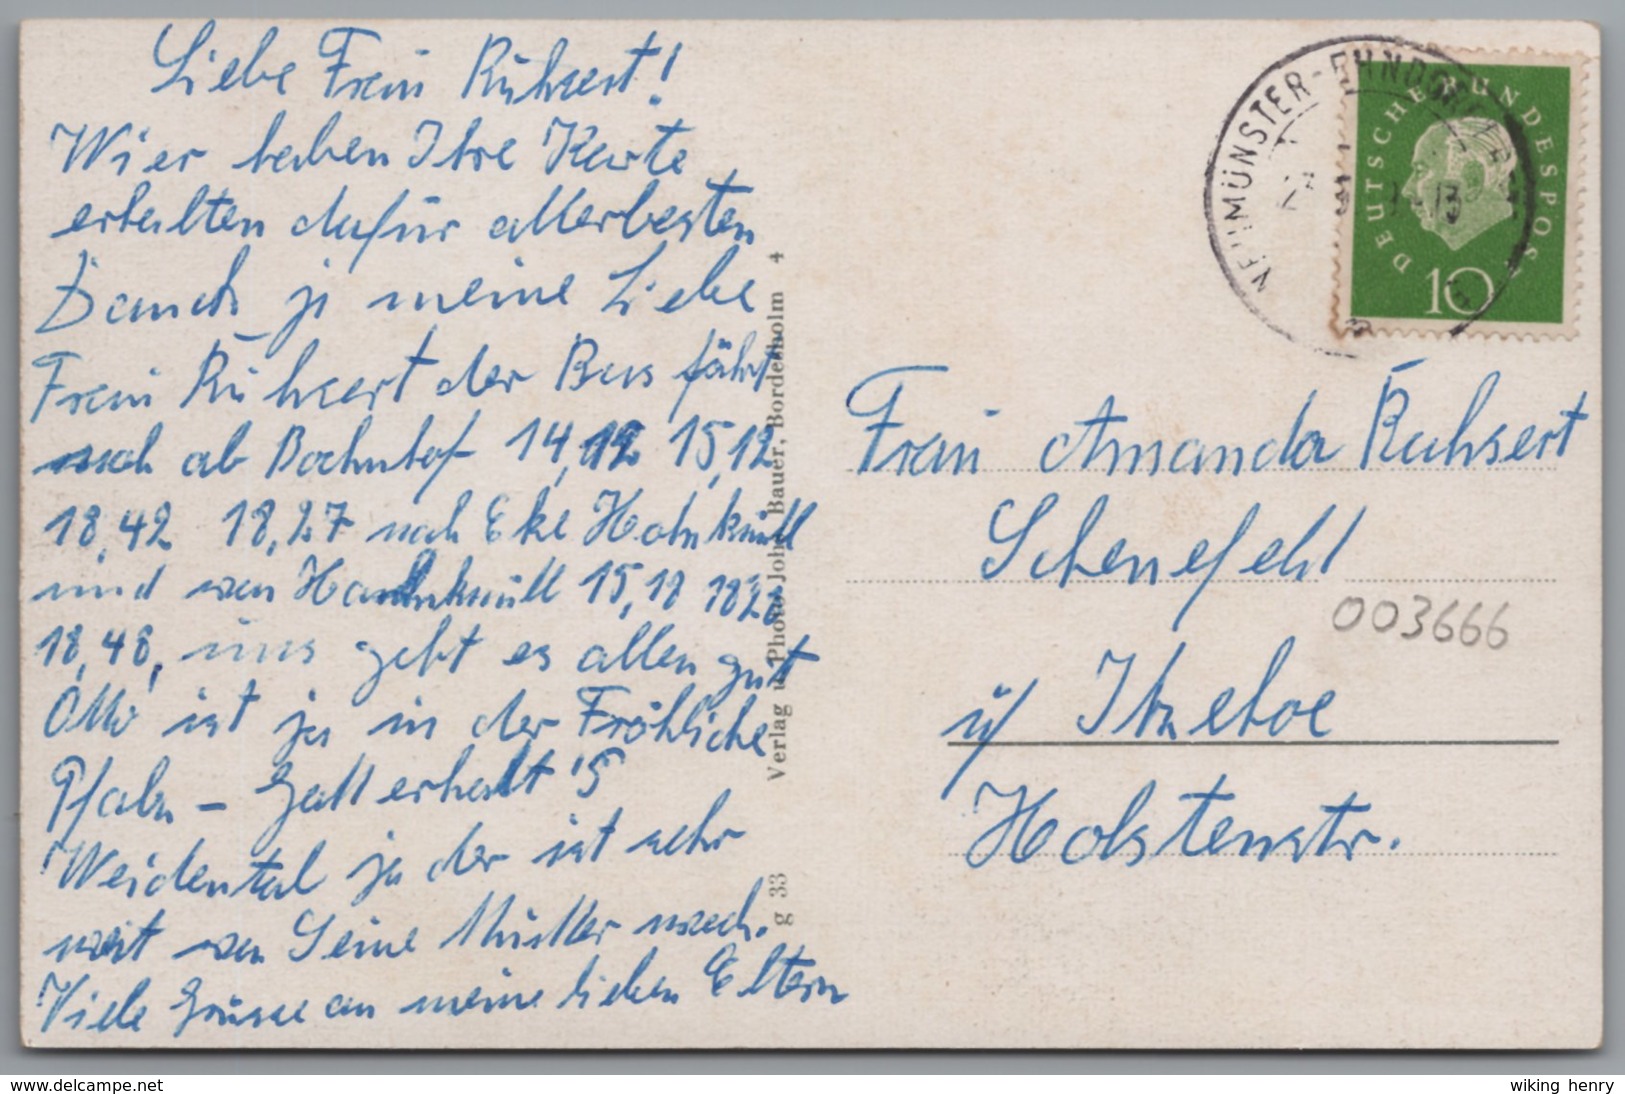 Liebe Frau Ruhsert!
Wier haben Ihre Karte
erhalten dafür allerbesten
Dank ja meine Liebe
Frau Ruhsert der Bus fährt
nach ab Bachnhof 14,12 15,12
18,42 18,27 nach Eke Hahnknüll
und van Hahnknüll 15,18 18
18,48, uns geht es allen gut
Otto ist ja in der Fröhliche
Pfalz – Gott erhalt's
Weidental ja der ist sehr
weit van Seine Mutter wech.
Viele Grüsse an meine lieben Eltern
Verlag u. Photo Joh. Bauer, Bordesholm 4
g 33
NEUMÜNSTER-EHNDORF
DEUTSCHE BUNDESPOST
10
Frau Amanda Ruhsert
Schenefeld
003666
ü/ Itzehoe
Holstenstr.
www.delcampe.net
wiking henry